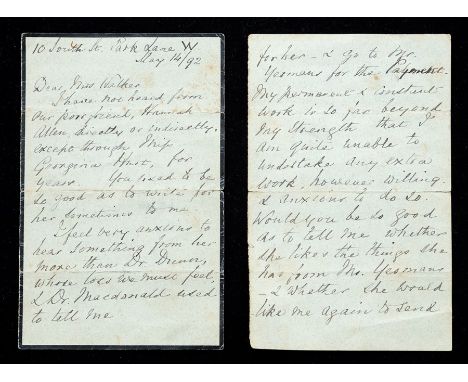 10 South St. Park Lane W
May 14/92
Dear Miss Walker
I have not heard from
our poor friend, Hannah
Allen directly or indirectly,
except through Miss
Georgina Hurt, for
years. You used to be
so good as to write for
her sometimes to me.
I feel very anxious to
hear something from her
more than Dr.
whose loss we must feel,
& Dr. Macdonald used
to tell me
for her - & go to Mr.
Yeomans for the Payment.
My permanent & constant
work is so far beyond
my strength that I
am quite unable to
undertake any extra
work, however willing
& anxious to do so.
Would you be so good
as to tell me whether
she likes the things she
has from Mr. Yeomans
- & whether she would
like me again to send